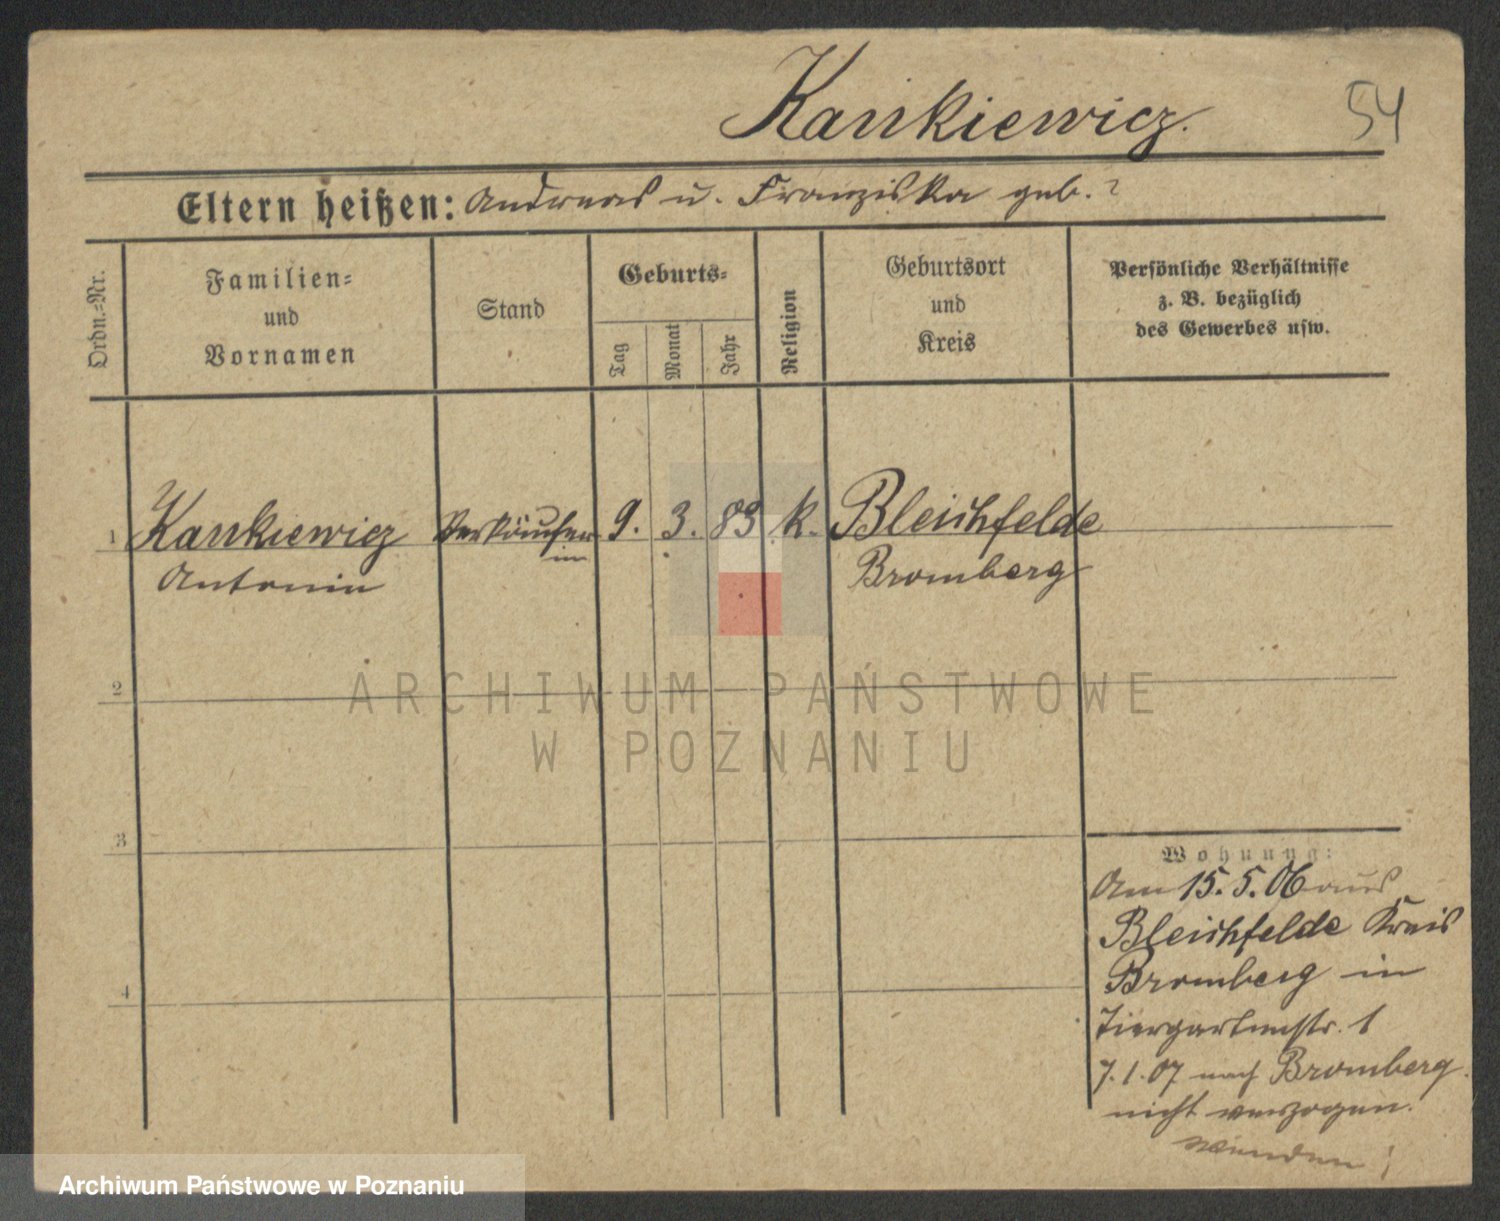 Kankiewicz.
54
Eltern heißen: Andreas u. Franziska geb. ?
Ordn.-Nr.
Familien-
und
Vornamen
Stand
Geburts-
Tag
Monat
Jahr
Religion
Geburtsort
und
Kreis
Persönliche Verhältnisse
z. B. bezüglich
des Gewerbes usw.
1 Kankiewicz Verkäufer- 9. 3. 83 k. Bleichfelde
Antonin in Bromberg
2
ARCHIWUM PAŃSTWOWE
W POZNANIU
3
Wohnung:
Am 15. 5. 06 aus
Bleichfelde Kreis
Bromberg in
4
Tiergartenstr. 1
7. 1. 07 nach Bromberg.
nicht verzogen.
wenden!
Archiwum Państwowe w Poznaniu